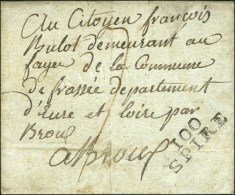 Au Citoyen françois
Bulot demeurant au
fayer de la Commune
de frassée departement
d'Eure et loire par
Brou
a Brou
100
SPIRE